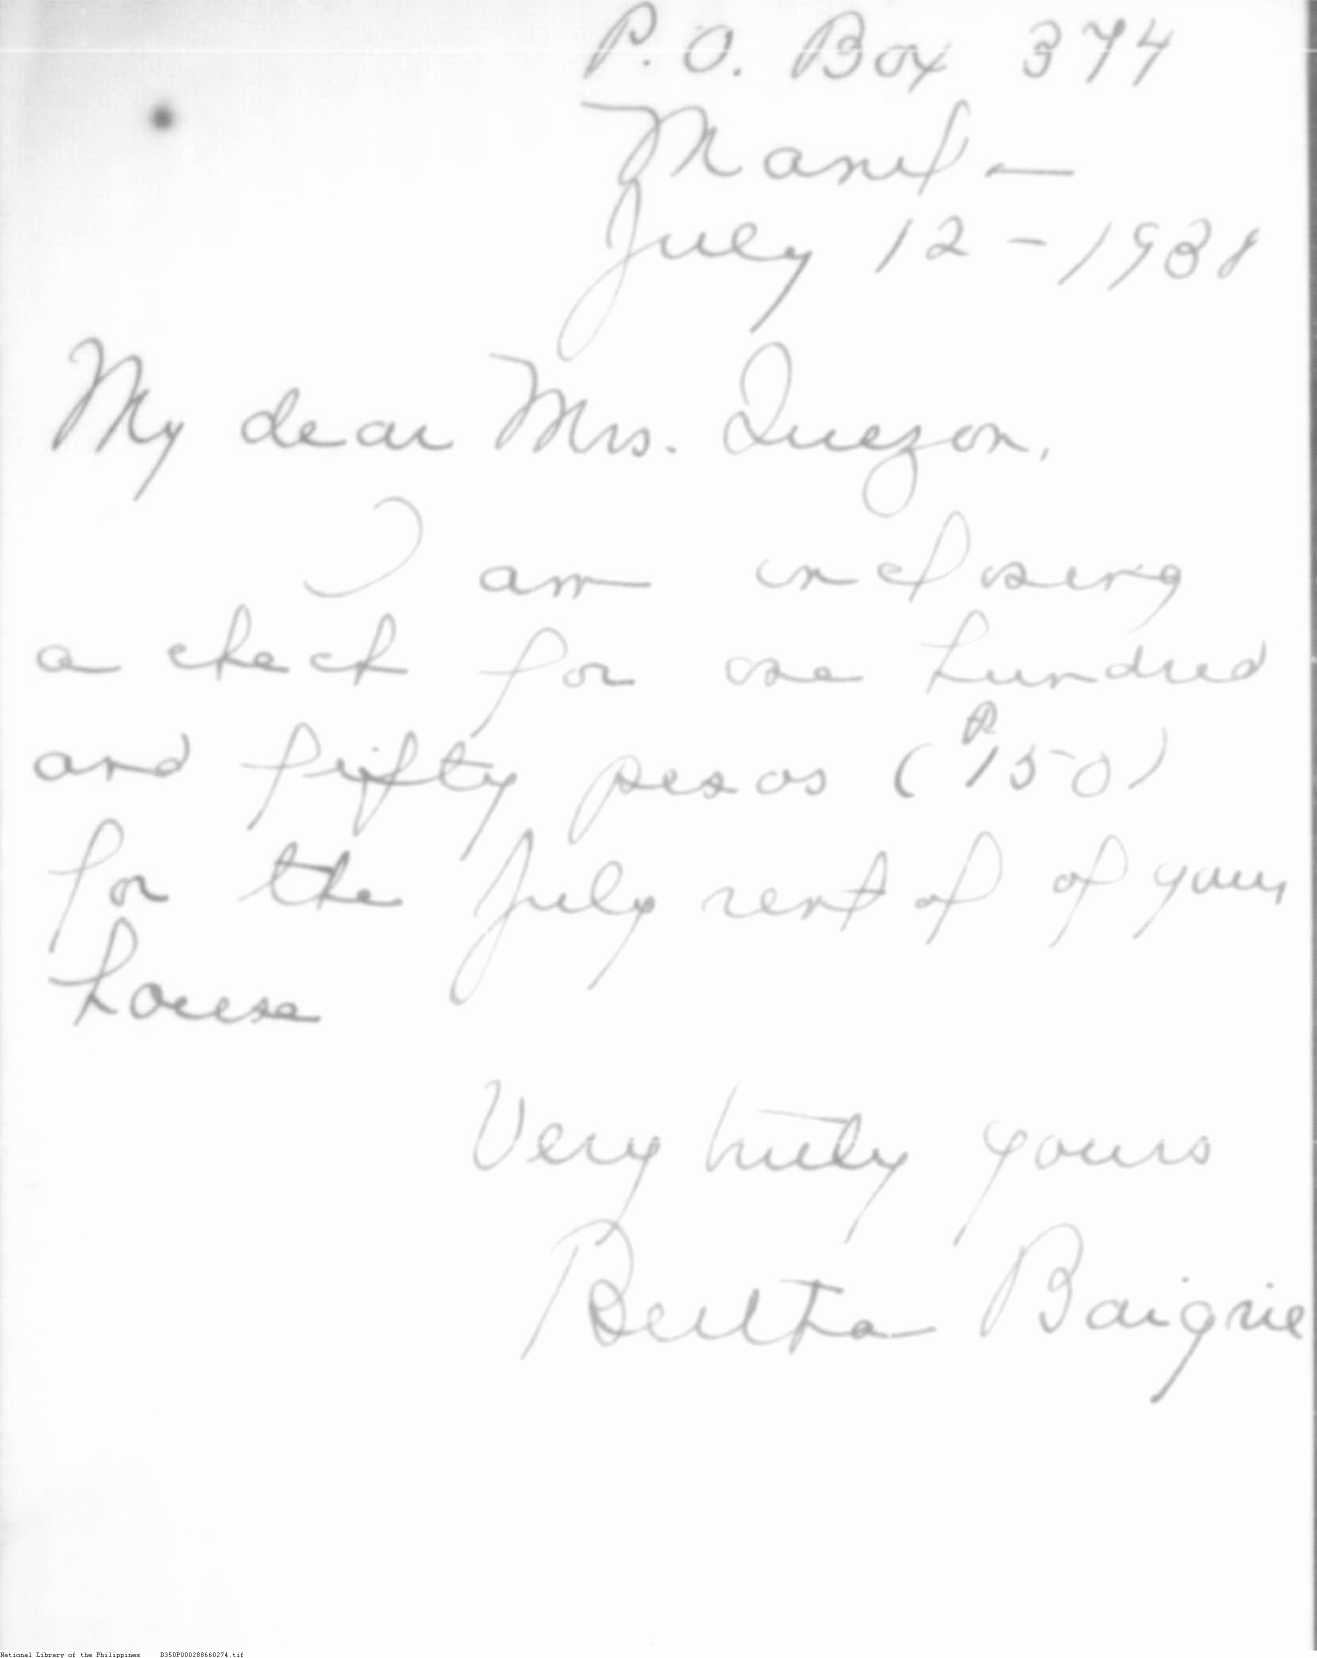 P.O. Box 374
Manila
July 12 - 1938
My dear Mrs. Quezon,
I am inclosing
a check for one hundred
and fifty pesos (₱150)
for the July rent of of your
house
Very truly yours
Bertha Baigrie
National Library of the Philippines D350P000288660274.tif